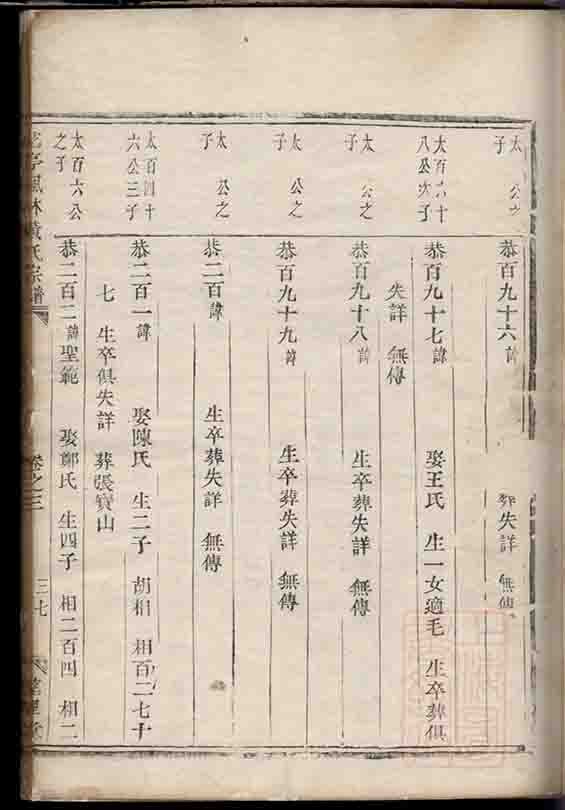 太 公之子
恭百九十六諱 葬失詳 無傳
太百六十八公次子
恭百九十七諱 娶王氏 生一女適毛 生卒葬俱
失詳 無傳
太 公之子
恭百九十八諱 生卒葬失詳 無傳
太 公之子
恭百九十九諱 生卒葬失詳 無傳
太 公之子
恭二百諱 生卒葬失詳 無傳
太百四十六公三子
恭二百一諱 娶陳氏 生二子 胡相 相百二七十
七 生卒俱失詳 葬張寶山
太百六公之子
恭二百二諱聖範 娶鄭氏 生四子 相二百四 相二
鳳林黃氏宗譜 卷之三 三七